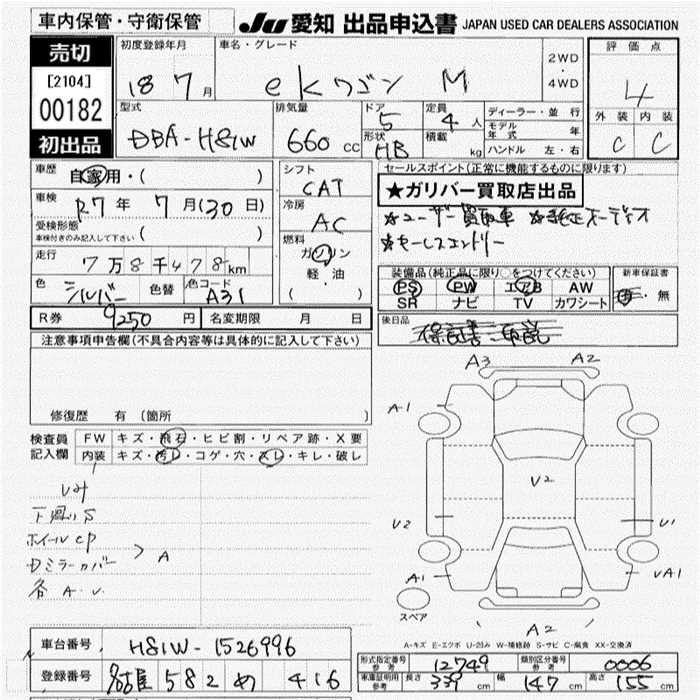 車内保管・守衛保管
JU 愛知 出品申込書 JAPAN USED CAR DEALERS ASSOCIATION
売切
[2104]
00182
初出品
初度登録年月
18 7月
車名・グレード
ekワゴン M
2WD・4WD
評価点
4
外装 内装
C C
型式
DBA-H81W
排気量
660 cc
ドア
5
形状
HB
定員
4人
積載
kg
ディーラー・並行
モデル年式 年
ハンドル 左・右
車歴 自家用・( )
車検 R7年 7月(30日)
受検形態
車検付きのみ記入して下さい ( )
走行 7万8千478km
色 シルバー 色替 色コード A31
シフト
CAT
冷房
AC
燃料
ガソリン
軽・油
( )
セールスポイント(正常に機能するものに限ります)
★ガリバー買取店出品
☆ユーザー買取車 ☆純正オーディオ
☆セールスエントリー
装備品(純正品に限り○をつけてください)
PS PW エアB AW
SR ナビ TV カワシート
新車保証書
有・無
R券 9250円 名変期限 月 日
後日品
保証書 取説
注意事項申告欄(不具合内容等は具体的に記入して下さい)
修復歴 有(箇所 )
検査員記入欄
FW キズ・飛石・ヒビ割・リペア跡・X要
内装 キズ・汚レ・コゲ・穴・スレ・キレ・破レ
下廻りS
ホイールCP
Dミラーカバー > A
各A.U
A3 A2
A1
V2
V2
U1
A1
UA1
スペア
A2
A-キズ E-エクボ U-凹み W-補修跡 S-サビ C-腐食 XX-交換済
車台番号 H81W-1526996
登録番号 名古屋 582 め 416
形式指定番号 参考 12749 類別区分番号 参考 0006
車庫証明用 参考 長さ 339cm 幅 147cm 高さ 155cm